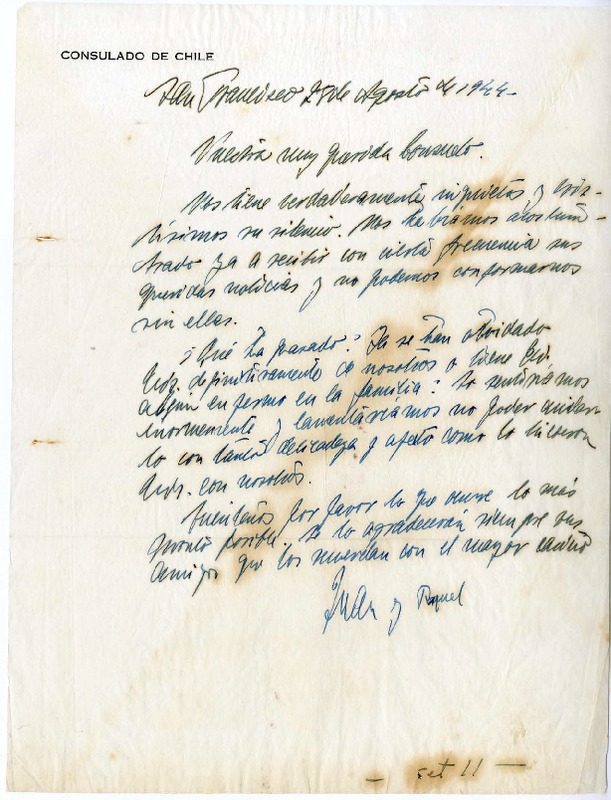 CONSULADO DE CHILE
San Francisco 25 de Agosto de 1944.
Nuestra muy querida Consuelo.
Nos tiene verdaderamente inquietos y tris-
tísimos su silencio. Nos habíamos acostum-
brado ya a recibir con cierta frecuencia sus
queridas noticias y no podemos conformarnos
sin ellas.
¿Qué ha pasado? Ya se han olvidado
Uds. definitivamente de nosotros o tiene Ud.
algún enfermo en la familia? Lo sentiríamos
enormemente y lamentaríamos no poder cuidar-
lo con tanta delicadeza y afecto como lo hicieron
Uds. con nosotros.
Cuéntenos por favor lo que ocurre lo más
pronto posible. Se lo agradecerán siempre sus
amigos que los recuerdan con el mayor cariño
Juan y Raquel
- set 11 -